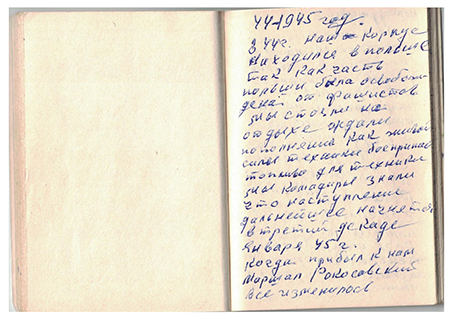 44-1945 год.
В 44г. наш Корпус
находился в польше
Так как часть
польши была освобож
дена от фашистов
мы стояли на
отдыхе ждали
пополнение как живой
силы техники боеприпас
топливо для техники
мы командиры знали
что наступление
дальнейшее начнется
в третий декаде
января 45 г.
когда прибыл к нам
Маршал Рокосовский
все изменилось